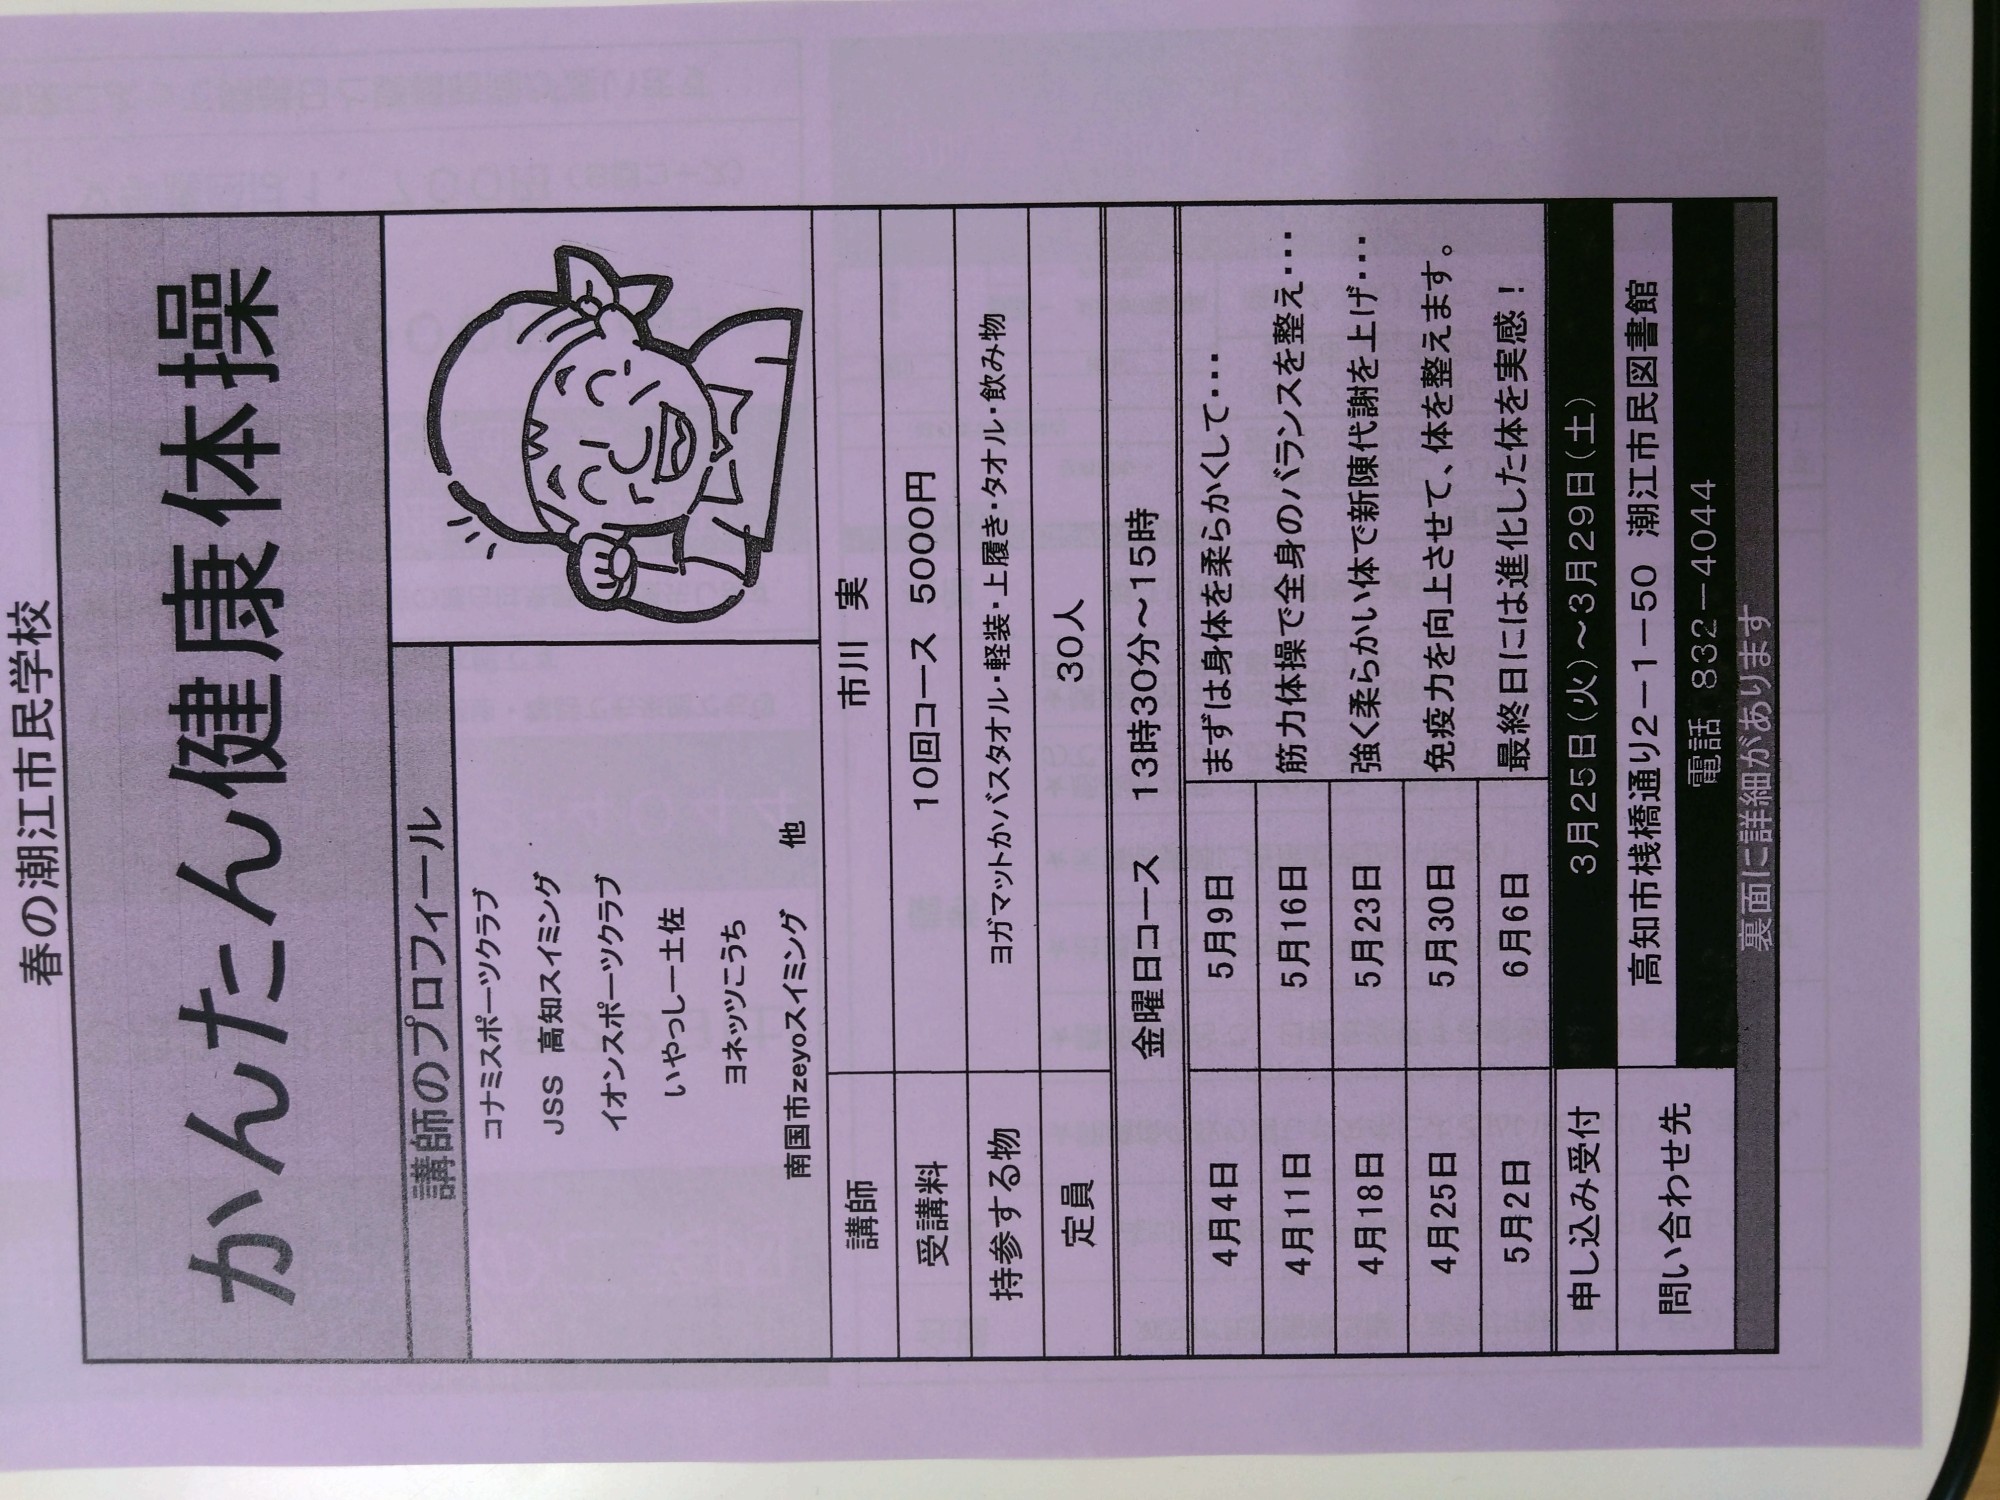 春の潮江市民学校
かんたん健康体操
講師のプロフィール
コナミスポーツクラブ
JSS 高知スイミング
イオンスポーツクラブ
いやっしー土佐
ヨネッツこうち
南国市zeyoスイミング 他
講師 市川 実
受講料 10回コース 5000円
持参する物 ヨガマットかバスタオル・軽装・上履き・タオル・飲み物
定員 30人
金曜日コース 13時30分～15時
4月4日 5月9日 まずは身体を柔らかくして・・・
4月11日 5月16日 筋力体操で全身のバランスを整え・・・
4月18日 5月23日 強く柔らかい体で新陳代謝を上げ・・・
4月25日 5月30日 免疫力を向上させて、体を整えます。
5月2日 6月6日 最終日には進化した体を実感！
申し込み受付 3月25日（火）～3月29日（土）
問い合わせ先 高知市桟橋通り2－1－50 潮江市民図書館
電話 832－4044
裏面に詳細があります